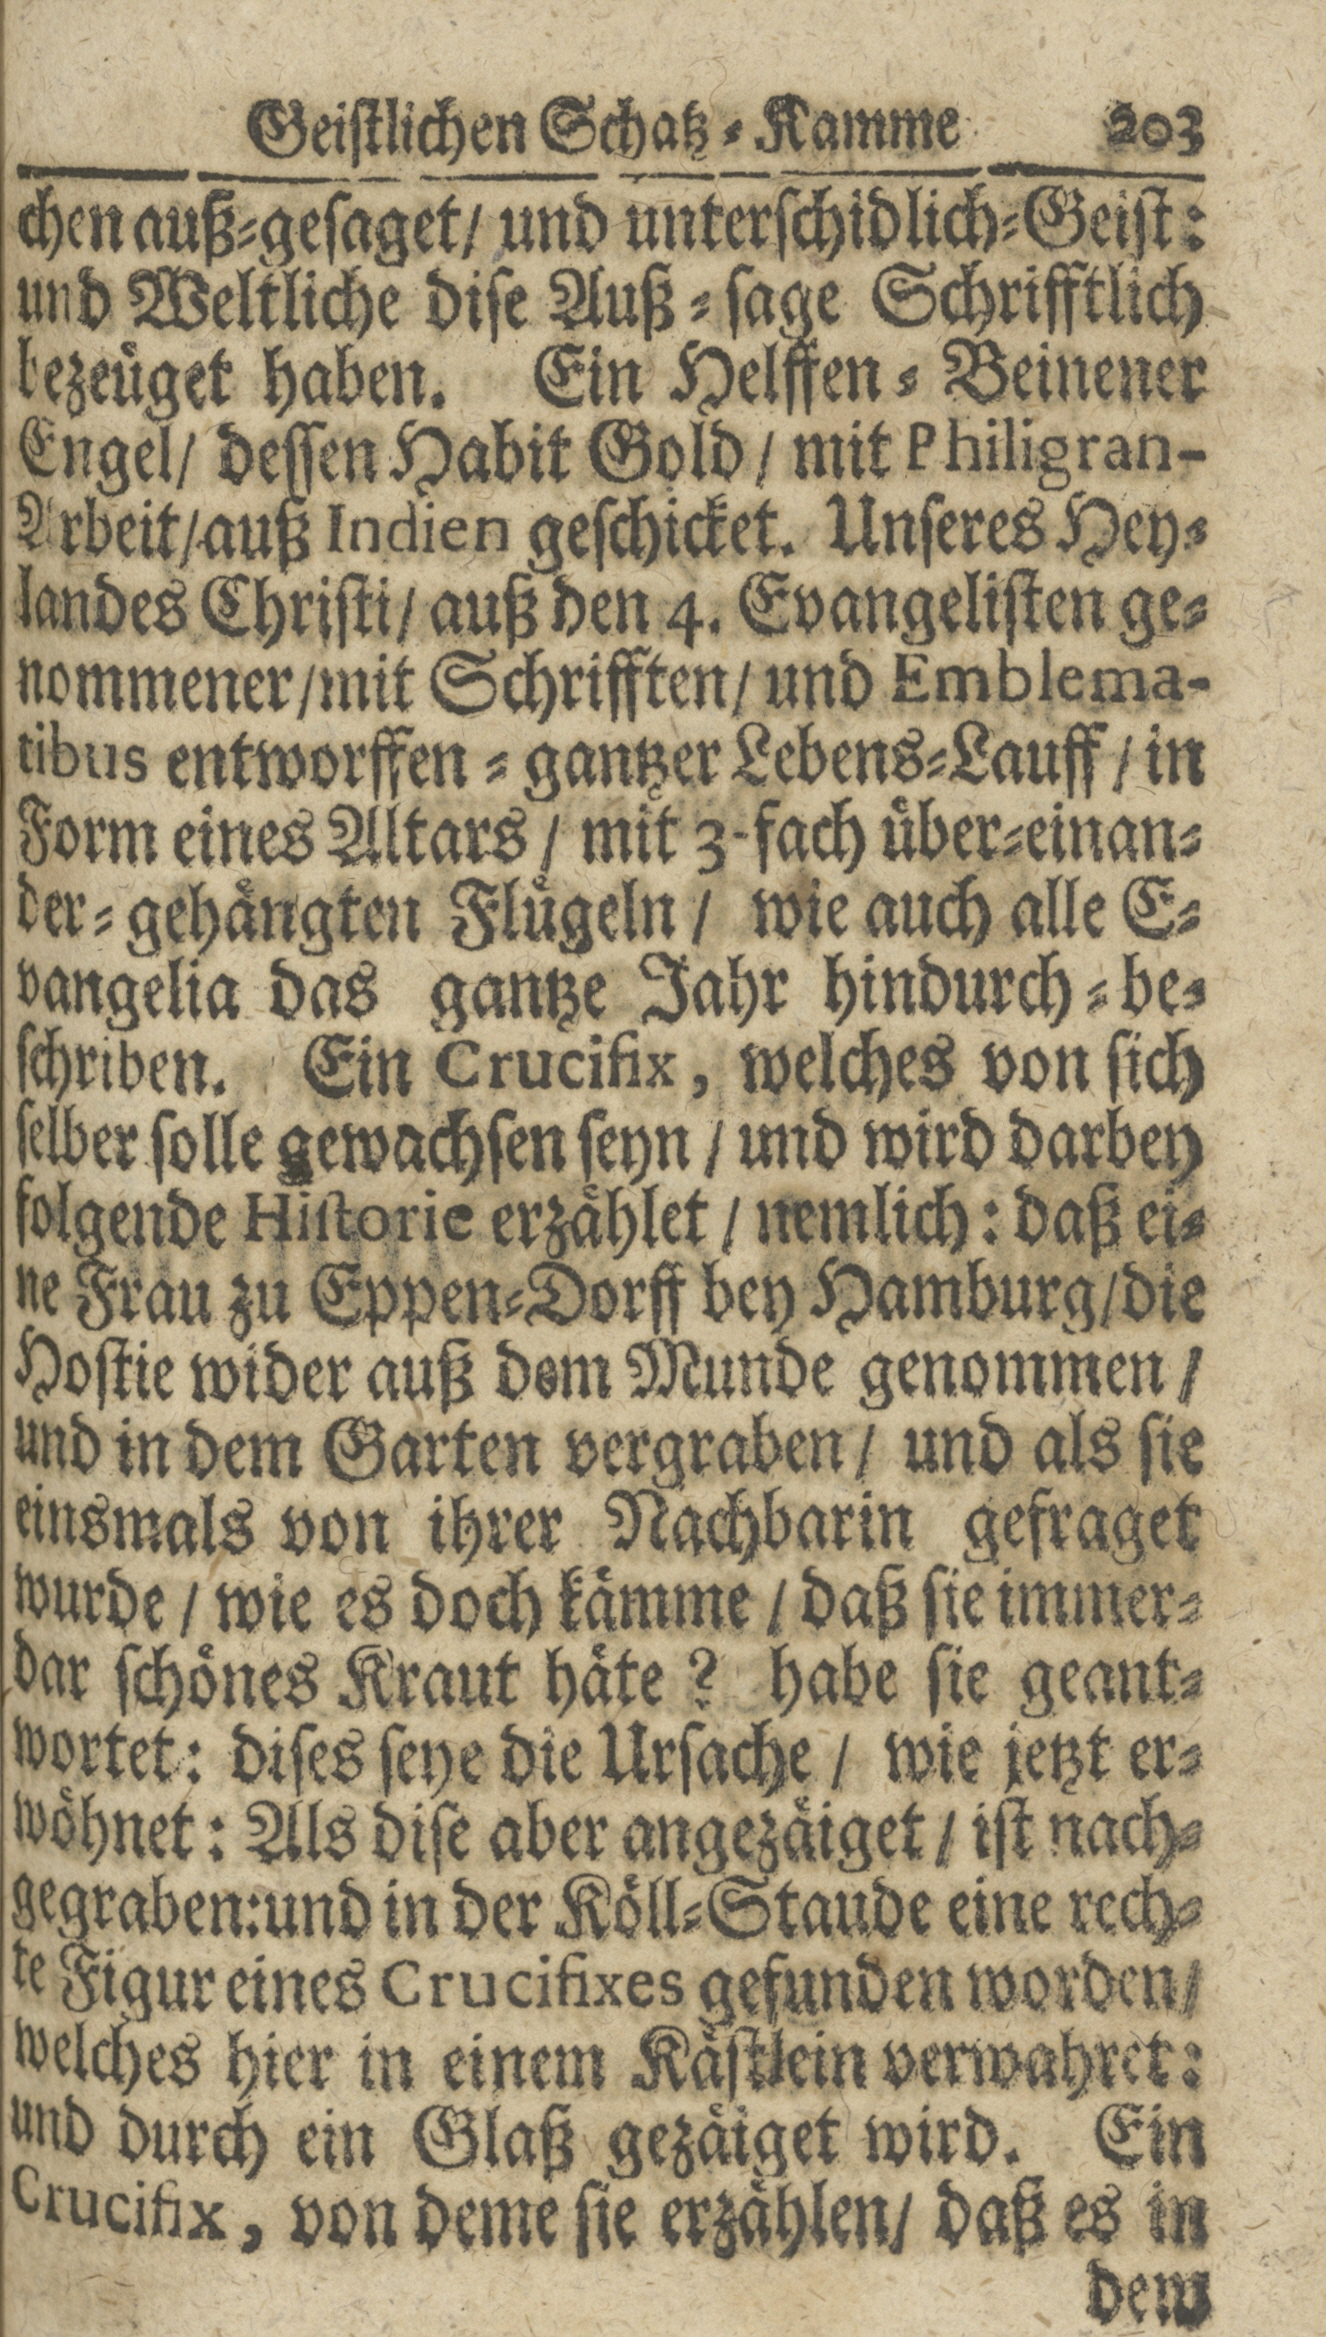 Geistlichen Schatz-Kamme 203
chen auß-gesaget/ und unterschidlich-Geist:
und Weltliche dise Auß-sage Schrifftlich
bezeüget haben. Ein Helffen-Beinener
Engel/ dessen Habit Gold/ mit Philigran-
Arbeit/ auß Indien geschicket. Unseres Hey-
landes Christi/ auß den 4. Evangelisten ge-
nommener/ mit Schrifften/ und Emblema-
tibus entworffen-gantzer Lebens-Lauff/ in
Form eines Altars/ mit 3-fach über-einan-
der-gehängten Flügeln/ wie auch alle E-
vangelia das gantze Jahr hindurch-be-
schriben. Ein Crucifix, welches von sich
selber solle gewachsen seyn/ und wird darbey
folgende Historie erzählet/ nemlich: daß ei-
ne Frau zu Eppen-Dorff bey Hamburg/ die
Hostie wider auß dem Munde genommen/
und in dem Garten vergraben/ und als sie
einsmals von ihrer Nachbarin gefraget
wurde/ wie es doch kämme/ daß sie immer-
dar schönes Kraut häte? habe sie geant-
wortet: dises seye die Ursache/ wie jetzt er-
wöhnet: Als dise aber angezäiget/ ist nach-
gegraben: und in der Köll-Staude eine rech-
te Figur eines Crucifixes gefunden worden/
welches hier in einem Kästlein verwahret:
und durch ein Glaß gezäiget wird. Ein
Crucifix, von deme sie erzählen/ daß es in
dem